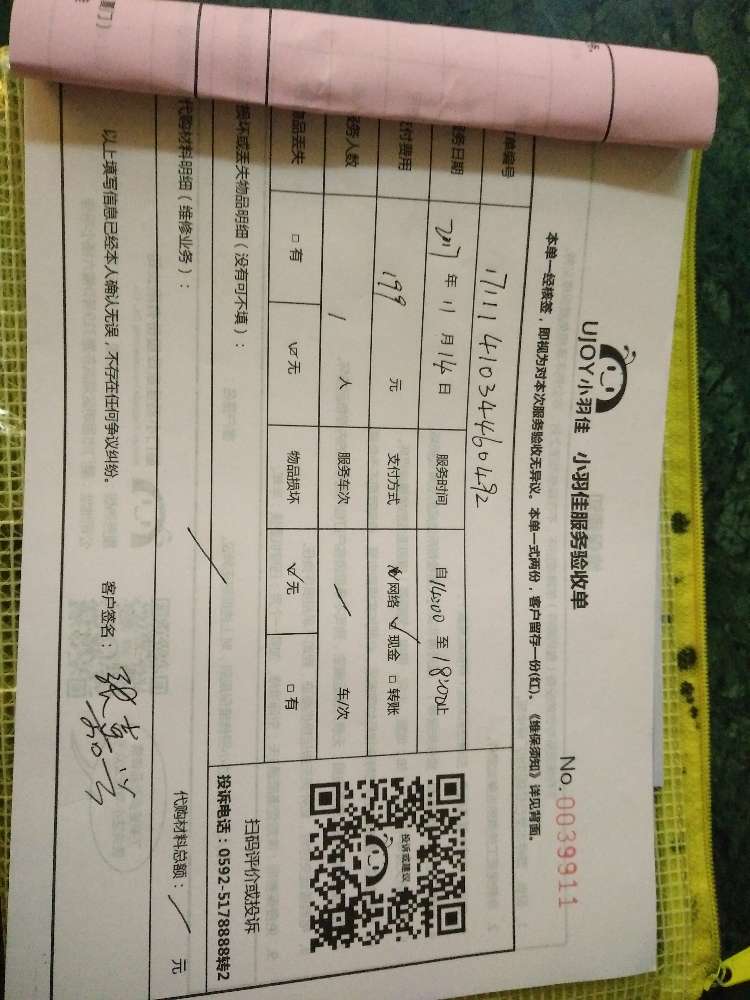 UJOY小羽佳 小羽佳服务验收单
No.0039911
本单一经核签，即视为对本次服务验收无异议。本单一式两份，客户留存一份(红)。《维保须知》详见背面。
单编号 1711141034460492
务日期 2017 年 11 月 14 日 服务时间 自 14:00 至 18:00 止
付费用 199 元 支付方式 网络 ☑ 现金 □ 转账
务人数 1 人 服务车次 / 车/次
物品丢失 □ 有 ☑ 无 物品损坏 ☑ 无 □ 有
投诉或建议
扫码评价或投诉
投诉电话：0592-5178888转2
损坏或丢失物品明细（没有可不填）：
代购材料明细（维修业务）： / 代购材料总额： / 元
以上填写信息已经本人确认无误，不存在任何争议纠纷。 客户签名：